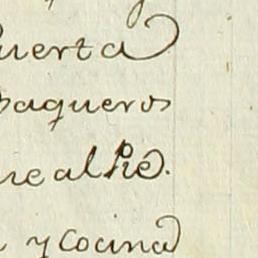 uerta
baqueros
ue al Pie.
y cocina